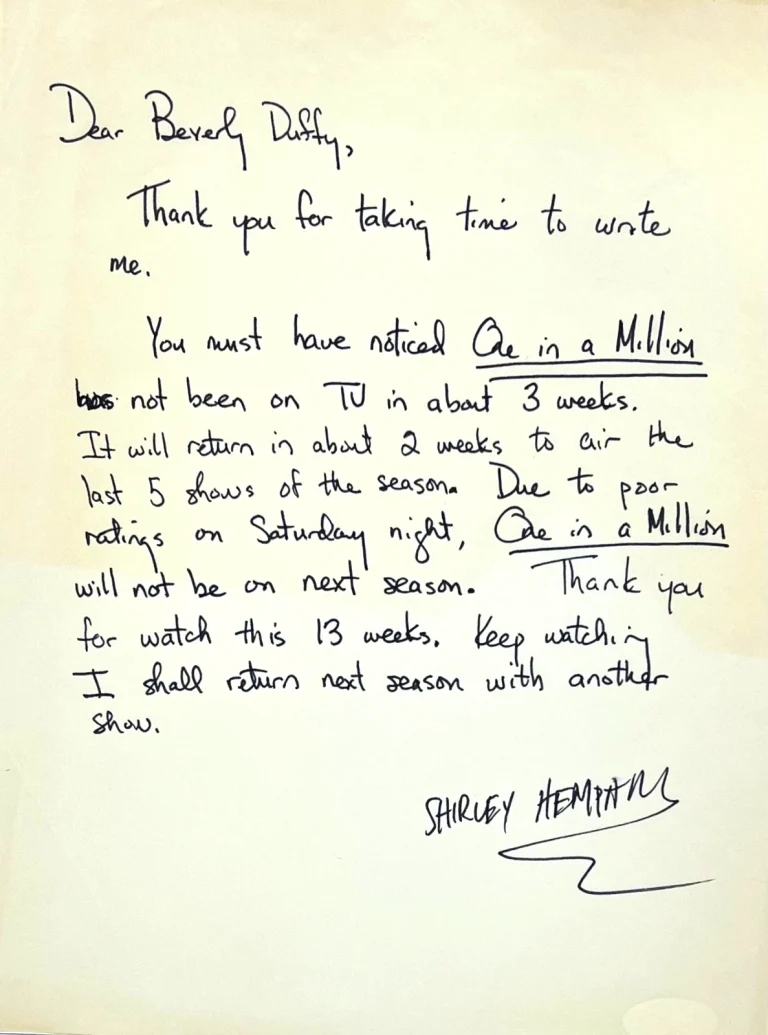 Dear Beverly Duffy,
Thank you for taking time to write
me.
You must have noticed One in a Million
has not been on TV in about 3 weeks.
It will return in about 2 weeks to air the
last 5 shows of the season. Due to poor
ratings on Saturday night, One in a Million
will not be on next season. Thank you
for watch this 13 weeks. Keep watching
I shall return next season with another
show.
SHIRLEY HEMPHILL